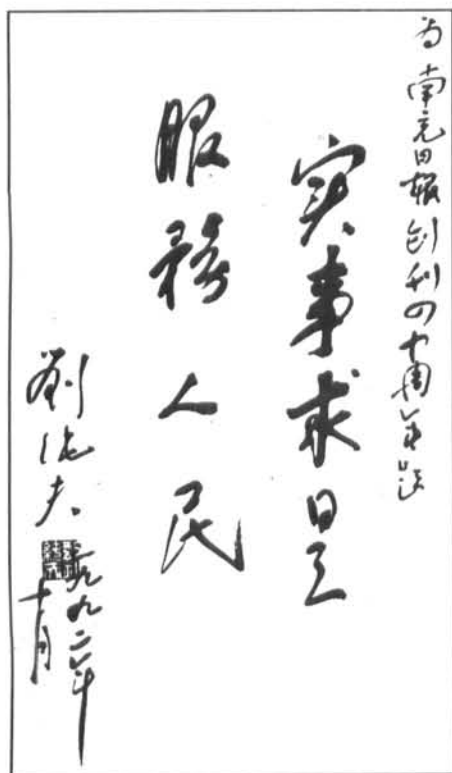 为南充日报创刊四十周年题
实事求是
服务人民
刘
一九九二年
十月